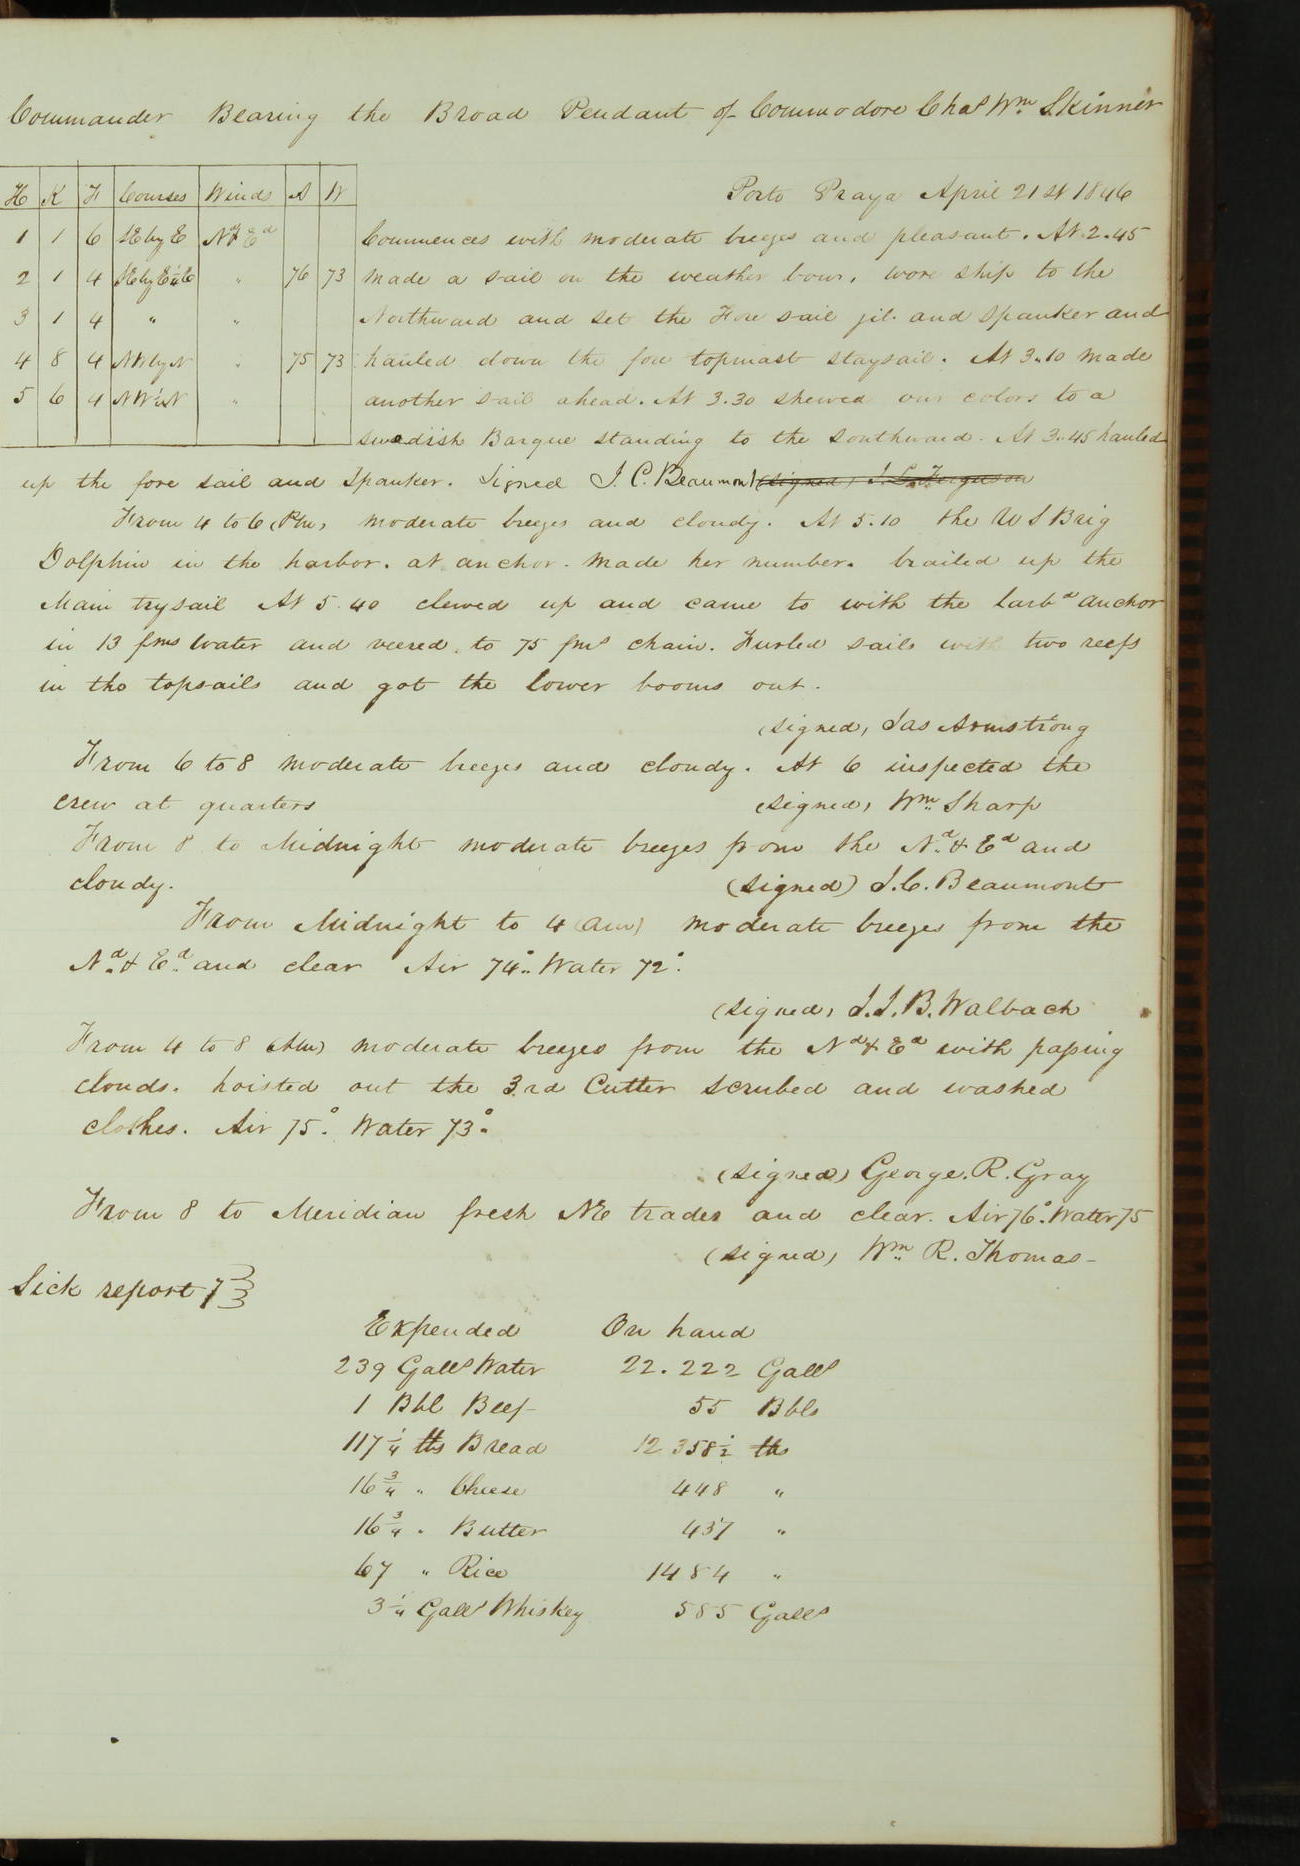 Commander Bearing the Broad Pendant of Commodore Chas Wm Skinner
H K F Courses Winds A W
Porto Praya April 21st 1846
1 1 6 SE by E Nd & Ed
Commences with moderate breezes and pleasant. At 2.45
2 1 4 SE by E ½ E " 76 73
made a sail on the weather bow, wore ship to the
3 1 4 " "
Northward and set the Fore sail jib and spanker and
4 8 4 NW by N " 75 73
hauled down the fore topmast staysail. At 3.10 made
5 6 4 NW ½ N "
another sail ahead. At 3.30 shewed our colors to a
swedish Barque standing to the southward. At 3.45 hauled
up the fore sail and spanker. Signed J. C. Beaumont (signed) J. L. Ferguson
From 4 to 6 (Pm) moderate breezes and cloudy. At 5.10 the U S Brig
Dolphin in the harbor. at anchor. made her number. brailed up the
Main trysail At 5.40 clewed up and came to with the larbd anchor
in 13 fms water and veered to 75 fms chain. Furled sails with two reefs
in the topsails and got the lower booms out.
(signed) Jas Armstrong
From 6 to 8 moderate breezes and cloudy. At 6 inspected the
crew at quarters (signed) Wm Sharp
From 8 to Midnight moderate breezes from the Nd & Ed and
cloudy. (signed) J. C. Beaumont
From Midnight to 4 (am) moderate breezes from the
Nd & Ed and clear Air 74° Water 72°.
(signed) J. J. B. Walbach
From 4 to 8 (Am) moderate breezes from the Nd & Ed with passing
clouds. hoisted out the 3rd Cutter scrubed and washed
clothes. Air 75° Water 73°
(signed) George. R. Gray
From 8 to Meridian fresh NE trades and clear. Air 76° Water 75
(signed) Wm R. Thomas
Sick report 7
Expended On hand
239 Galls Water 22.222 Galls
1 Bbl Beef 55 Bbls
117 ¼ lbs Bread 12 358 ½ lbs
16 ¾ " Cheese 448 "
16 ¾ " Butter 437 "
67 " Rice 1484 "
3 ¼ Galls Whiskey 585 Galls